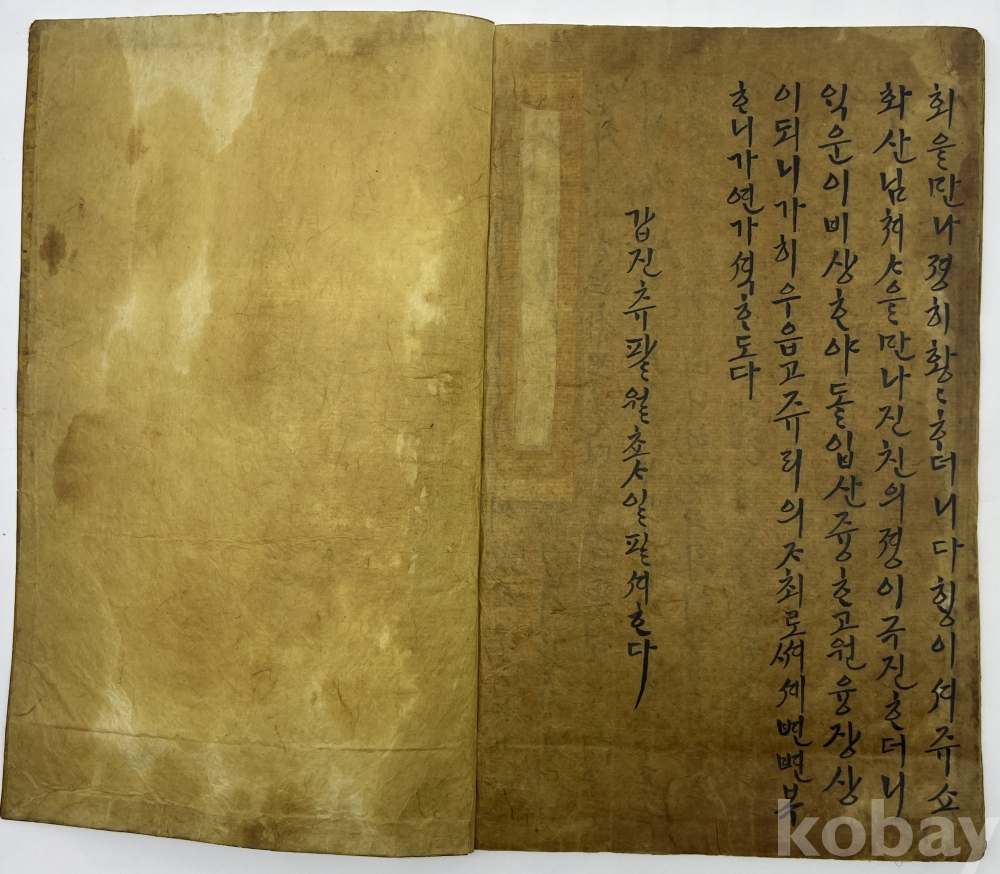 회을만나졍히황〻ᄒᆞ더니다힝이셔쥬쇼
화산님쳐ᄉᆞ을만나진친의졍이극진ᄒᆞ더니
익운이비상ᄒᆞ야돌입산즁ᄒᆞ고원융장상
이되니가히우읍고쥬리의ᄌᆞ최로쎠셰변변부
ᄒᆞ니가연가셕ᄒᆞ도다
갑진츄팔월쵸ᄉᆞ일필셔ᄒᆞ다
kobay